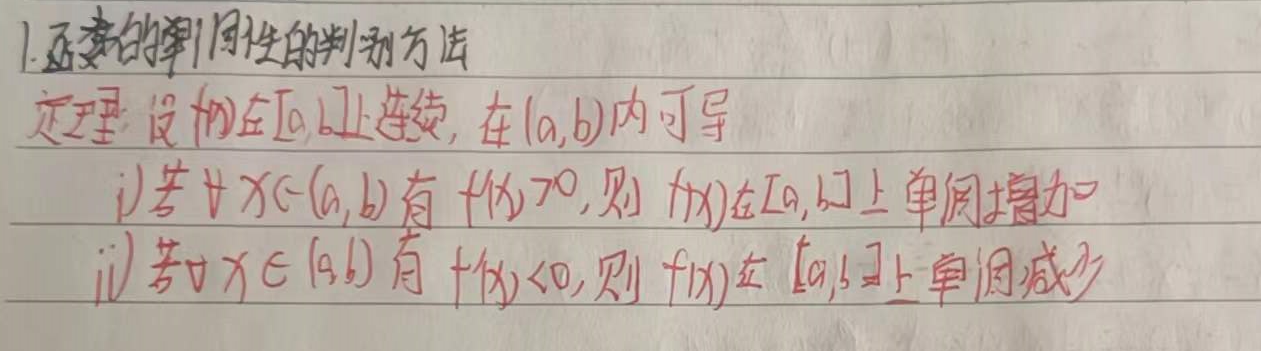 1.函数的单调性的判别方法
定理:设f(x)在[a,b]上连续,在(a,b)内可导
i)若∀x∈(a,b)有f'(x)>0,则f(x)在[a,b]上单调增加
ii)若∀x∈(a,b)有f'(x)<0,则f(x)在[a,b]上单调减少